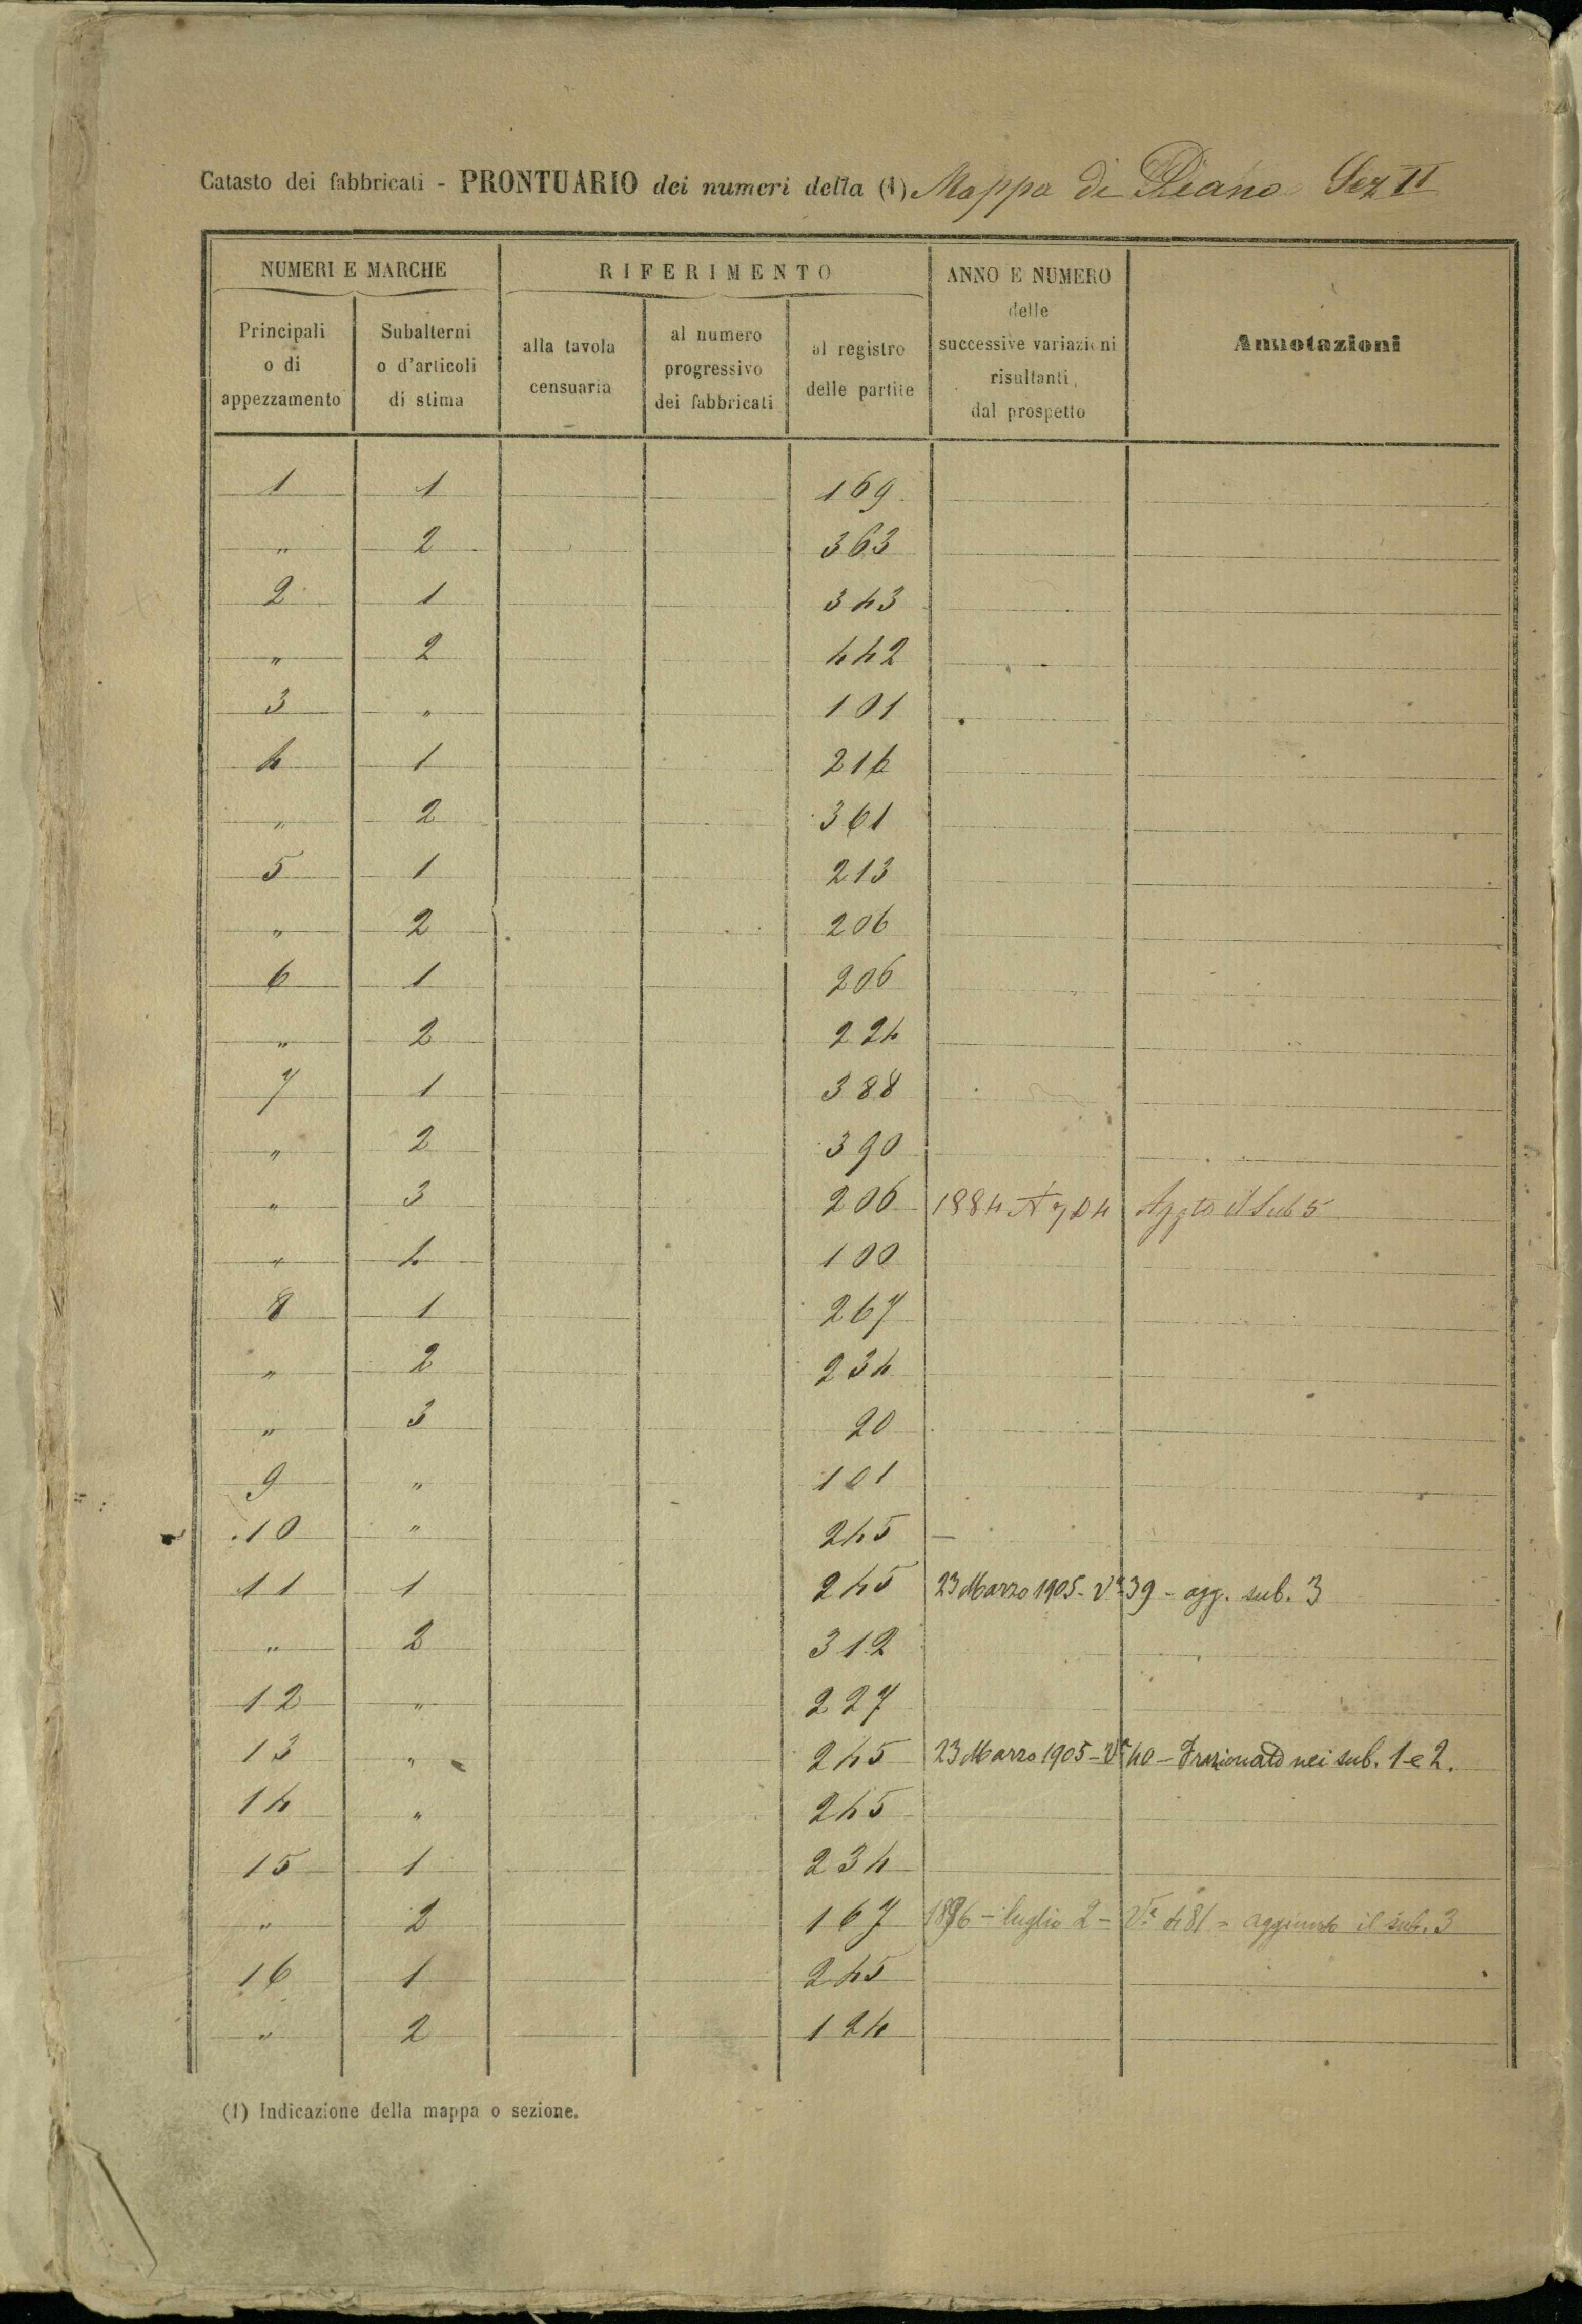 Catasto dei fabbricati - PRONTUARIO dei numeri della (1) Mappa di Piano Sez II
NUMERI E MARCHE
Principali o di appezzamento
Subalterni o d'articoli di stima
RIFERIMENTO
alla tavola censuaria
al numero progressivo dei fabbricati
al registro delle partite
ANNO E NUMERO delle successive variazioni risultanti dal prospetto
Annotazioni
1 1 169
" 2 363
2 1 343
" 2 442
3 " 101
4 1 216
" 2 361
5 1 213
" 2 206
6 1 206
" 2 224
7 1 388
" 2 390
" 3 206 1884 Aggto il Sub 5
" 4 100
8 1 267
" 2 234
" 3 20
9 " 101
10 " 245
11 1 245 23 Marzo 1905 - Va 39 - agg. sub. 3
" 2 312
12 " 227
13 " 245 23 Marzo 1905 - Va 40 - Frazionato nei sub. 1 e 2.
14 " 245
15 1 234
" 2 167 1896 - luglio 2 - Va 481 = aggiunto il sub. 3
16 1 245
" 2 124
(1) Indicazione della mappa o sezione.